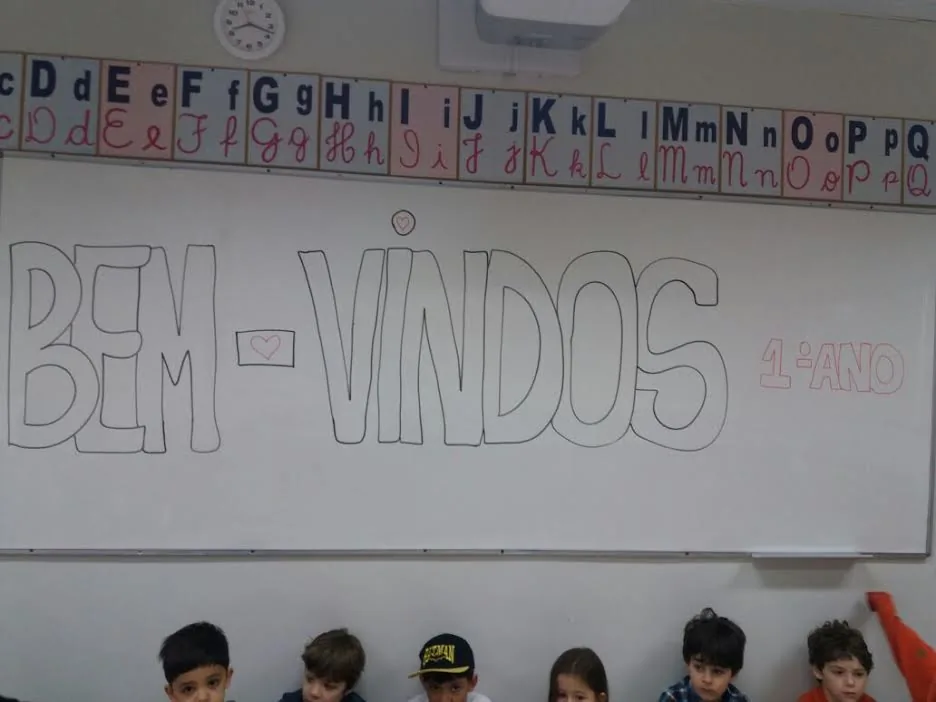 c D d E e F f G g H h I i J j K k L l M m N n O o P p Q
c D d E e F f G g H h I i J j K k L l M m N n O o P p Q
BEM-VINDOS
1º ANO
BATMAN